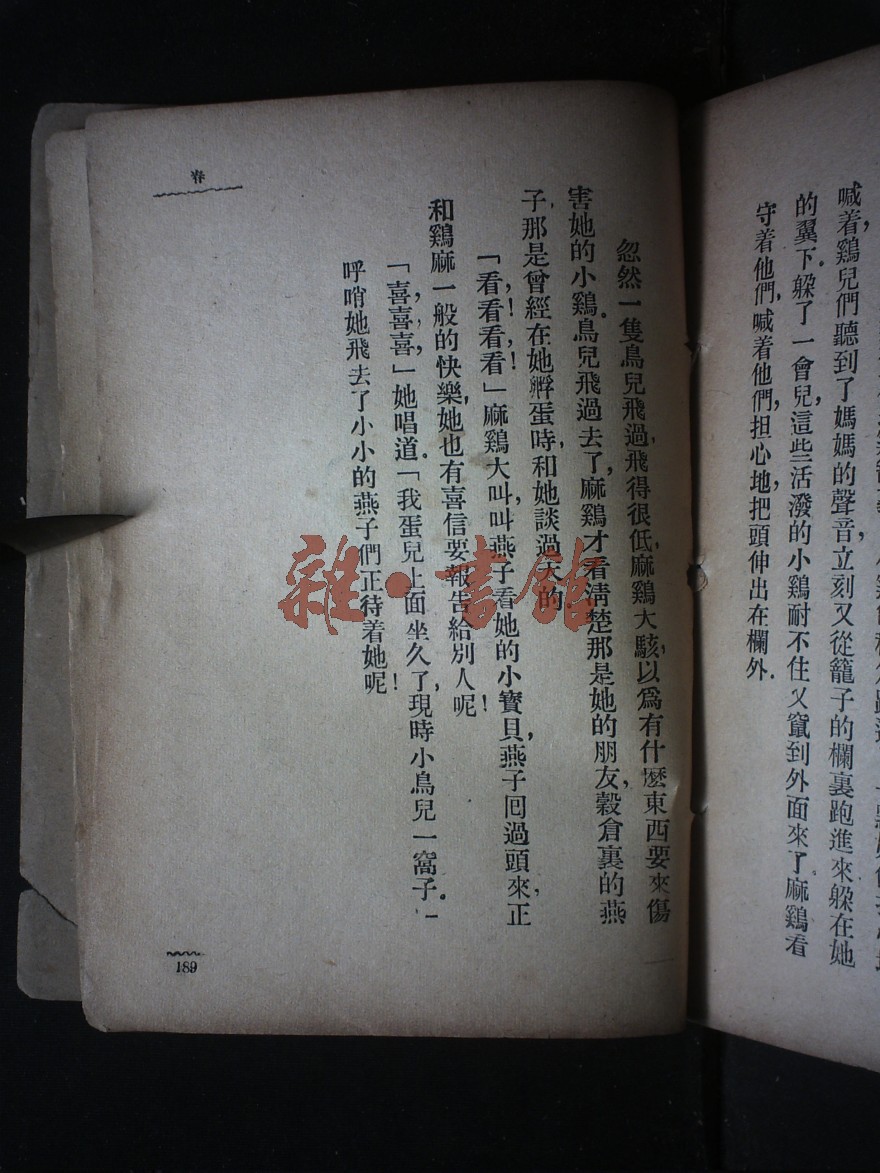 喊着，鷄兒們聽到了媽媽的聲音，立刻又從籠子的欄裏跑進來，躲在她
的翼下。躲了一會兒，這些活潑的小鷄耐不住，又竄到外面來了。麻鷄看
守着他們，喊着他們，担心地把頭伸出在欄外。
春
忽然一隻鳥兒飛過，飛得很低，麻鷄大駭，以爲有什麼東西要來傷
害她的小鷄。鳥兒飛過去了，麻鷄才看淸楚那是她的朋友，穀倉裏的燕
子，那是曾經在她孵蛋時，和她談過天的。
「看，看！看，看！」麻鷄大叫，叫燕子看她的小寶貝，燕子囘過頭來，正
和鷄麻一般的快樂，她也有喜信要報告給別人呢！
「喜，喜，喜，」她唱道。「我蛋兒上面坐久了，現時小鳥兒一窩子。」
呼哨她飛去了，小小的燕子們正待着她呢！
189
雜·書館